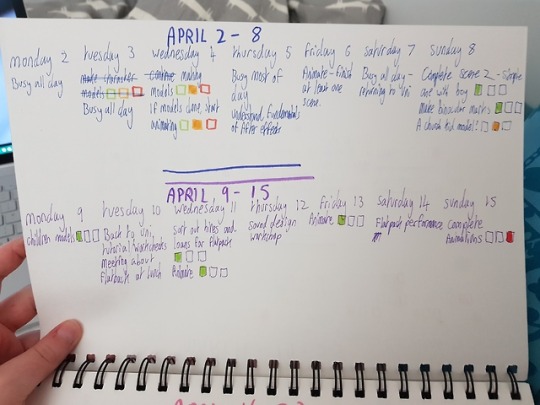 APRIL 2 - 8
monday 2
Busy all day
tuesday 3
make character
models
Busy all day
wednesday 4
continue making
models
If models done, start
animating
thursday 5
Busy most of
day
understand fundamentals
of After effects
friday 6
Animate - finish
at least one
scene.
saturday 7
Busy all day -
returning to uni
sunday 8
Complete scene 2 - simple
one with boy
make binocular masks
A church kid model!
APRIL 9 - 15
monday 9
children models
tuesday 10
Back to uni,
tutorial worksheets
meeting about
flatpack at lunch
wednesday 11
sort out hires and
loans for flatpack
Animate
thursday 12
sound design
workshop
friday 13
Animate
saturday 14
flatpack performance
sunday 15
complete
Animations